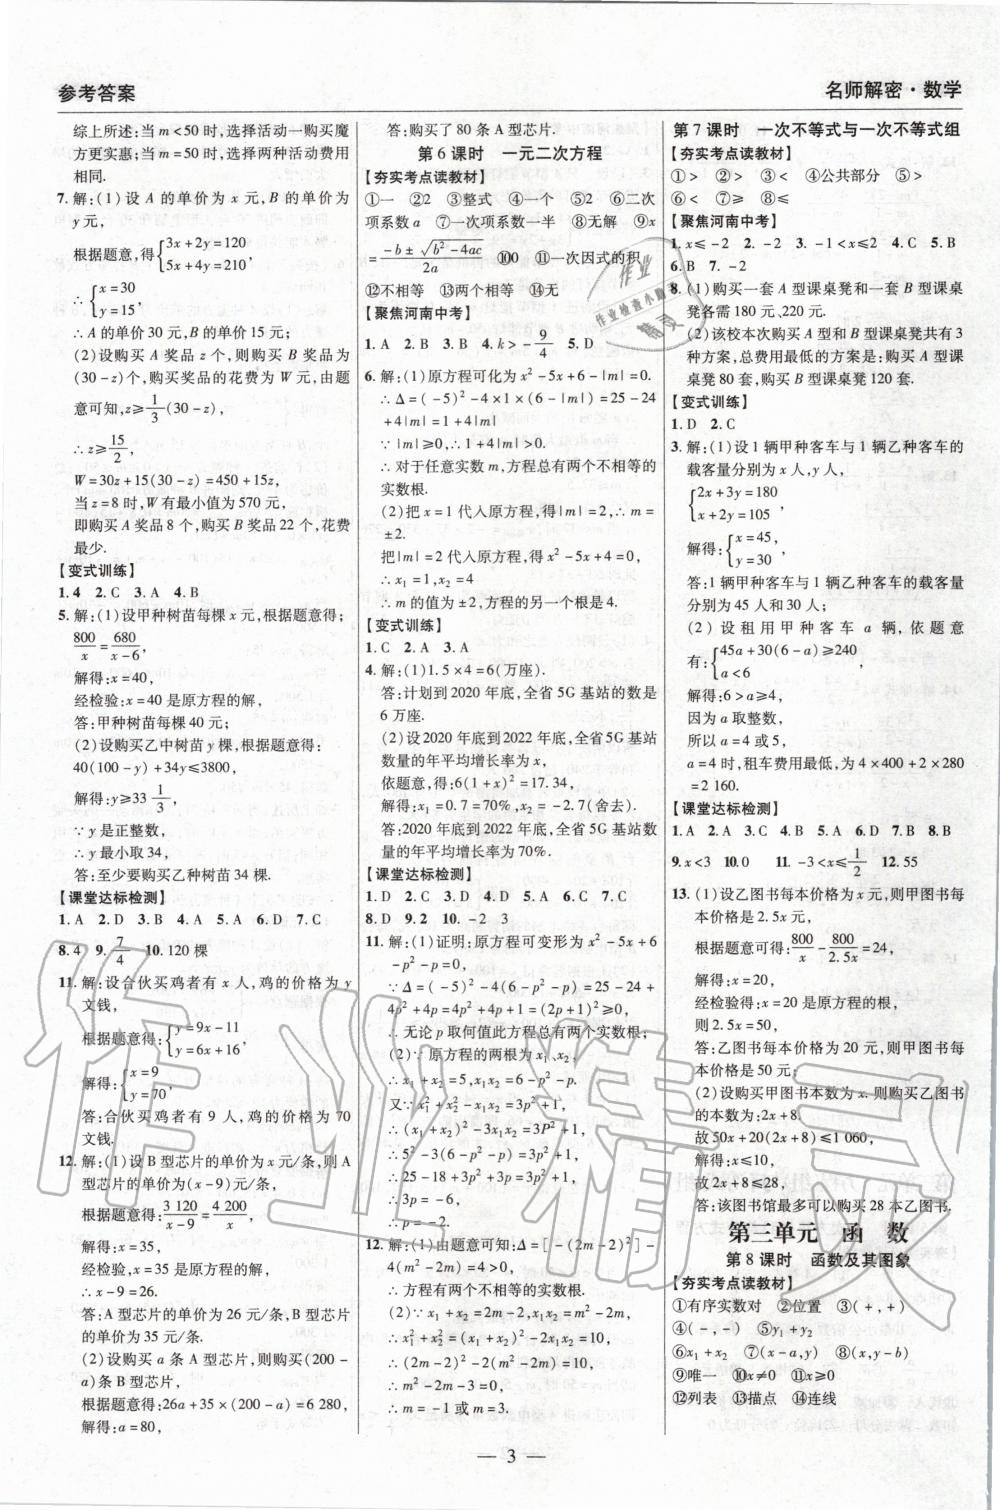 参考答案
名师解密·数学
综上所述:当 m<50 时,选择活动一购买魔
方更实惠;当 m=50 时,选择两种活动费用
相同.
7. 解:(1)设 A 的单价为 x 元,B 的单价为
y 元,
根据题意,得{3x+2y=120
5x+4y=210,
∴{x=30
y=15,
∴A 的单价 30 元,B 的单价 15 元;
(2)设购买 A 奖品 z 个,则购买 B 奖品为
(30-z)个,购买奖品的花费为 W 元,由题
意可知,z≥1/3(30-z),
∴z≥15/2,
W=30z+15(30-z)=450+15z,
当 z=8 时,W 有最小值为 570 元,
即购买 A 奖品 8 个,购买 B 奖品 22 个,花费
最少.
【变式训练】
1.4 2.C 3.A 4.B
5. 解:(1)设甲种树苗每棵 x 元,根据题意得:
800/x=680/(x-6),
解得:x=40,
经检验:x=40 是原方程的解,
答:甲种树苗每棵 40 元;
(2)设购买乙中树苗 y 棵,根据题意得:
40(100-y)+34y≤3800,
解得:y≥33 1/3,
∵y 是正整数,
∴y 最小取 34,
答:至少要购买乙种树苗 34 棵.
【课堂达标检测】
1.A 2.D 3.B 4.A 5.A 6.D 7.C
8.4 9.7/4 10.120 棵
11. 解:设合伙买鸡者有 x 人,鸡的价格为 y
文钱,
根据题意得:{y=9x-11
y=6x+16,
解得:{x=9
y=70
答:合伙买鸡者有 9 人,鸡的价格为 70
文钱.
12. 解:(1)设 B 型芯片的单价为 x 元/条,则 A
型芯片的单价为(x-9)元/条,
根据题意得:3 120/(x-9)=4 200/x,
解得:x=35,
经检验,x=35 是原方程的解,
∴x-9=26.
答:A 型芯片的单价为 26 元/条,B 型芯片
的单价为 35 元/条.
(2)设购买 a 条 A 型芯片,则购买(200-
a)条 B 型芯片,
根据题意得:26a+35×(200-a)=6 280,
解得:a=80,
答:购买了 80 条 A 型芯片.
第 6 课时 一元二次方程
【夯实考点读教材】
①一 ②2 ③整式 ④一个 ⑤2 ⑥二次
项系数 a ⑦一次项系数一半 ⑧无解 ⑨x
=(-b±√(b²-4ac))/2a ⑩0 ⑪一次因式的积
⑫不相等 ⑬两个相等 ⑭无
【聚焦河南中考】
1.A 2.B 3.B 4.k>-9/4 5.D
6. 解:(1)原方程可化为 x²-5x+6-|m|=0.
∴Δ=(-5)²-4×1×(6-|m|)=25-24
+4|m|=1+4|m|
∵|m|≥0,∴1+4|m|>0.
∴对于任意实数 m,方程总有两个不相等的
实数根.
(2)把 x=1 代入原方程,得|m|=2,∴m=
±2.
把|m|=2 代入原方程,得 x²-5x+4=0,
∴x₁=1,x₂=4
∴m 的值为±2,方程的另一个根是 4.
【变式训练】
1.C 2.A 3.A
4. 解:(1)1.5×4=6(万座).
答:计划到 2020 年底,全省 5G 基站的数是
6 万座.
(2)设 2020 年底到 2022 年底,全省 5G 基站
数量的年平均增长率为 x,
依题意,得:6(1+x)²=17.34,
解得:x₁=0.7=70%,x₂=-2.7(舍去).
答:2020 年底到 2022 年底,全省 5G 基站数
量的年平均增长率为 70%.
【课堂达标检测】
1.D 2.C 3.D 4.D 5.A 6.C 7.C
8.D 9.2 10.-2 3
11. 解:(1)证明:原方程可变形为 x²-5x+6
-p²-p=0,
∵Δ=(-5)²-4(6-p²-p)=25-24+
4p²+4p=4p²+4p+1=(2p+1)²≥0,
∴无论 p 取何值此方程总有两个实数根;
(2)∵原方程的两根为 x₁、x₂,
∴x₁+x₂=5,x₁x₂=6-p²-p.
又∵x₁²+x₂²-x₁x₂=3p²+1,
∴(x₁+x₂)²-3x₁x₂=3P²+1,
∴5²-3(6-p²-p)=3p²+1,
∴25-18+3p²+3p=3p²+1,
∴3p=-6,
∴p=-2.
12. 解:(1)由题意可知:Δ=[-(2m-2)²]
-4(m²-2m)=4>0,
∴方程有两个不相等的实数根.
(2)∵x₁+x₂=2m-2,x₁x₂=m²-2m,
∴x₁²+x₂²=(x₁+x₂)²-2x₁x₂=10,
∴(2m-2)²-2(m²-2m)=10,
∴m²-2m-3=0,
∴m=-1 或 m=3.
第 7 课时 一次不等式与一次不等式组
【夯实考点读教材】
①> ②> ③< ④公共部分 ⑤>
⑥< ⑦≥ ⑧≤
【聚焦河南中考】
1.x≤-2 2.-2 3.-1<x≤2 4.C 5.B
6.B 7.-2
8. (1)购买一套 A 型课桌凳和一套 B 型课桌
凳各需 180 元、220 元.
(2)该校本次购买 A 型和 B 型课桌凳共有 3
种方案,总费用最低的方案是:购买 A 型课
桌凳 80 套,购买 B 型课桌凳 120 套.
【变式训练】
1.D 2.C
3. 解:(1)设 1 辆甲种客车与 1 辆乙种客车的
载客量分别为 x 人,y 人,
{2x+3y=180
x+2y=105,
解得:{x=45,
y=30
答:1 辆甲种客车与 1 辆乙种客车的载客量
分别为 45 人和 30 人;
(2)设租用甲种客车 a 辆,依题意
有:{45a+30(6-a)≥240
a<6,
解得:6>a≥4,
因为 a 取整数,
所以 a=4 或 5,
a=4 时,租车费用最低,为 4×400+2×280
=2 160.
【课堂达标检测】
1.A 2.A 3.C 4.B 5.A 6.D 7.B 8.B
9.x<3 10.0 11.-3<x≤1/2 12.55
13. (1)设乙图书每本价格为 x 元,则甲图书每
本价格是 2.5x 元,
根据题意可得:800/x-800/2.5x=24,
解得:x=20,
经检验得:x=20 是原方程的根,
则 2.5x=50,
答:乙图书每本价格为 20 元,则甲图书每
本价格是 50 元;
(2)设购买甲图书本数为 x.则购买乙图书
的本数为:2x+8,
故 50x+20(2x+8)≤1 060,
解得:x≤10,
故 2x+8≤28,
答:该图书馆最多可以购买 28 本乙图书.
第三单元 函 数
第 8 课时 函数及其图象
【夯实考点读教材】
①有序实数对 ②位置 ③(+,+)
④(-,-) ⑤y₁+y₂
⑥x₁+x₂ ⑦(x-a,y) ⑧(x,y-a)
⑨唯一 ⑩x≠0 ⑪x≥0
⑫列表 ⑬描点 ⑭连线
— 3 —
作业精灵
作业
作业检查小助手
精灵